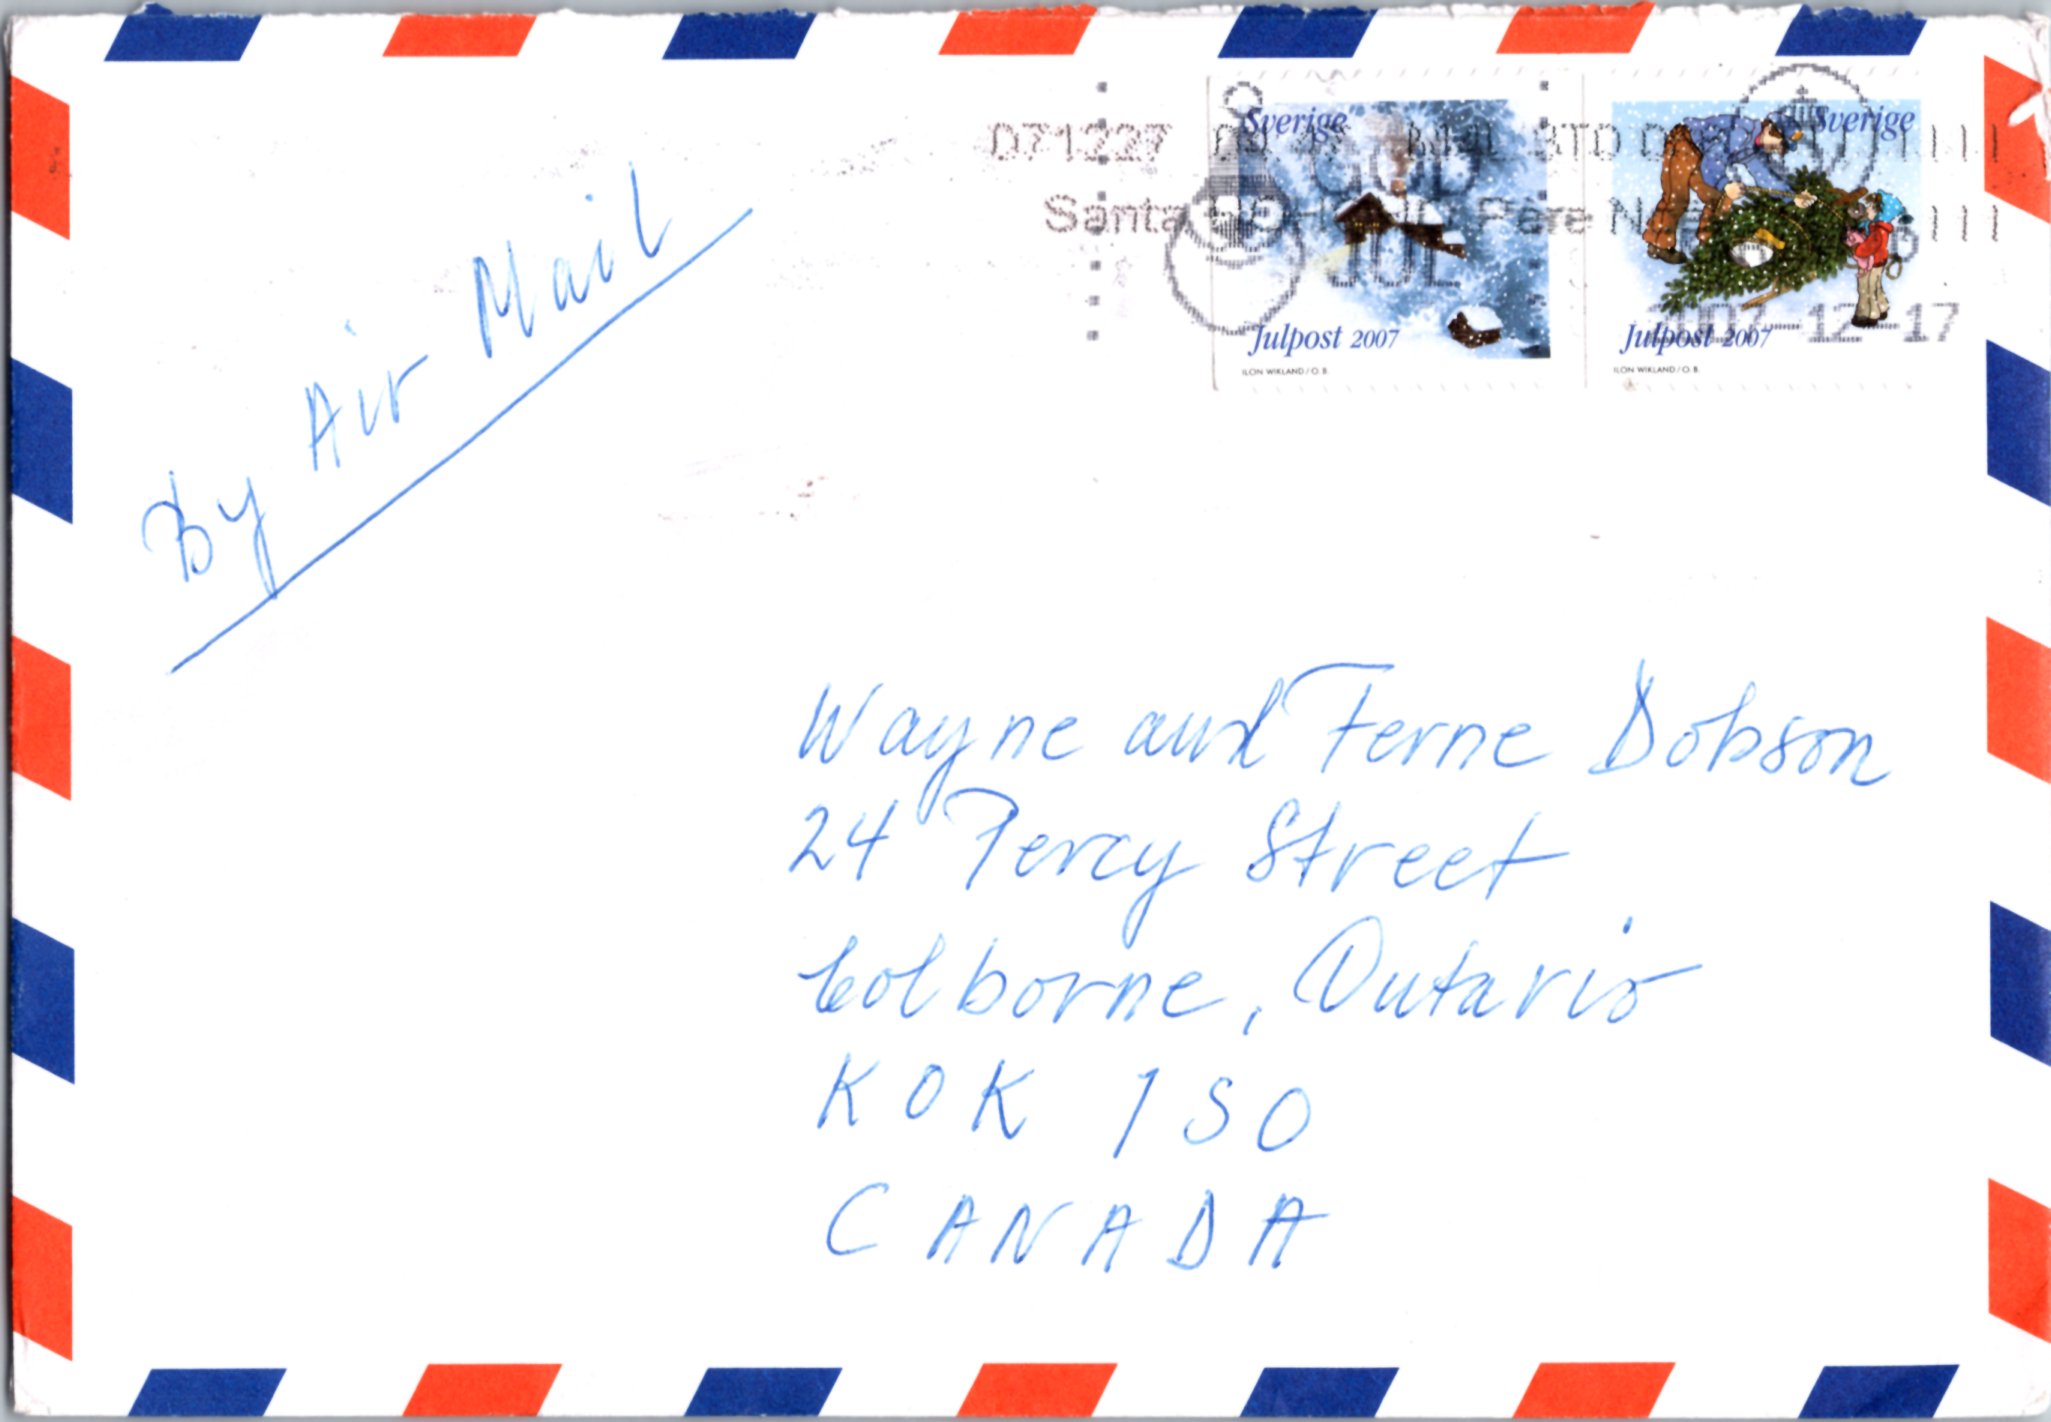 Sverige
Sverige
D71227
STD
Santa H0H 0H0 Père N
GOD
JUL
2007-12-17
Julpost 2007
Julpost 2007
ILON WIKLAND / O. B.
ILON WIKLAND / O. B.
By Air Mail
Wayne and Ferne Dobson
24 Percy Street
Colborne, Ontario
K0K 1S0
CANADA